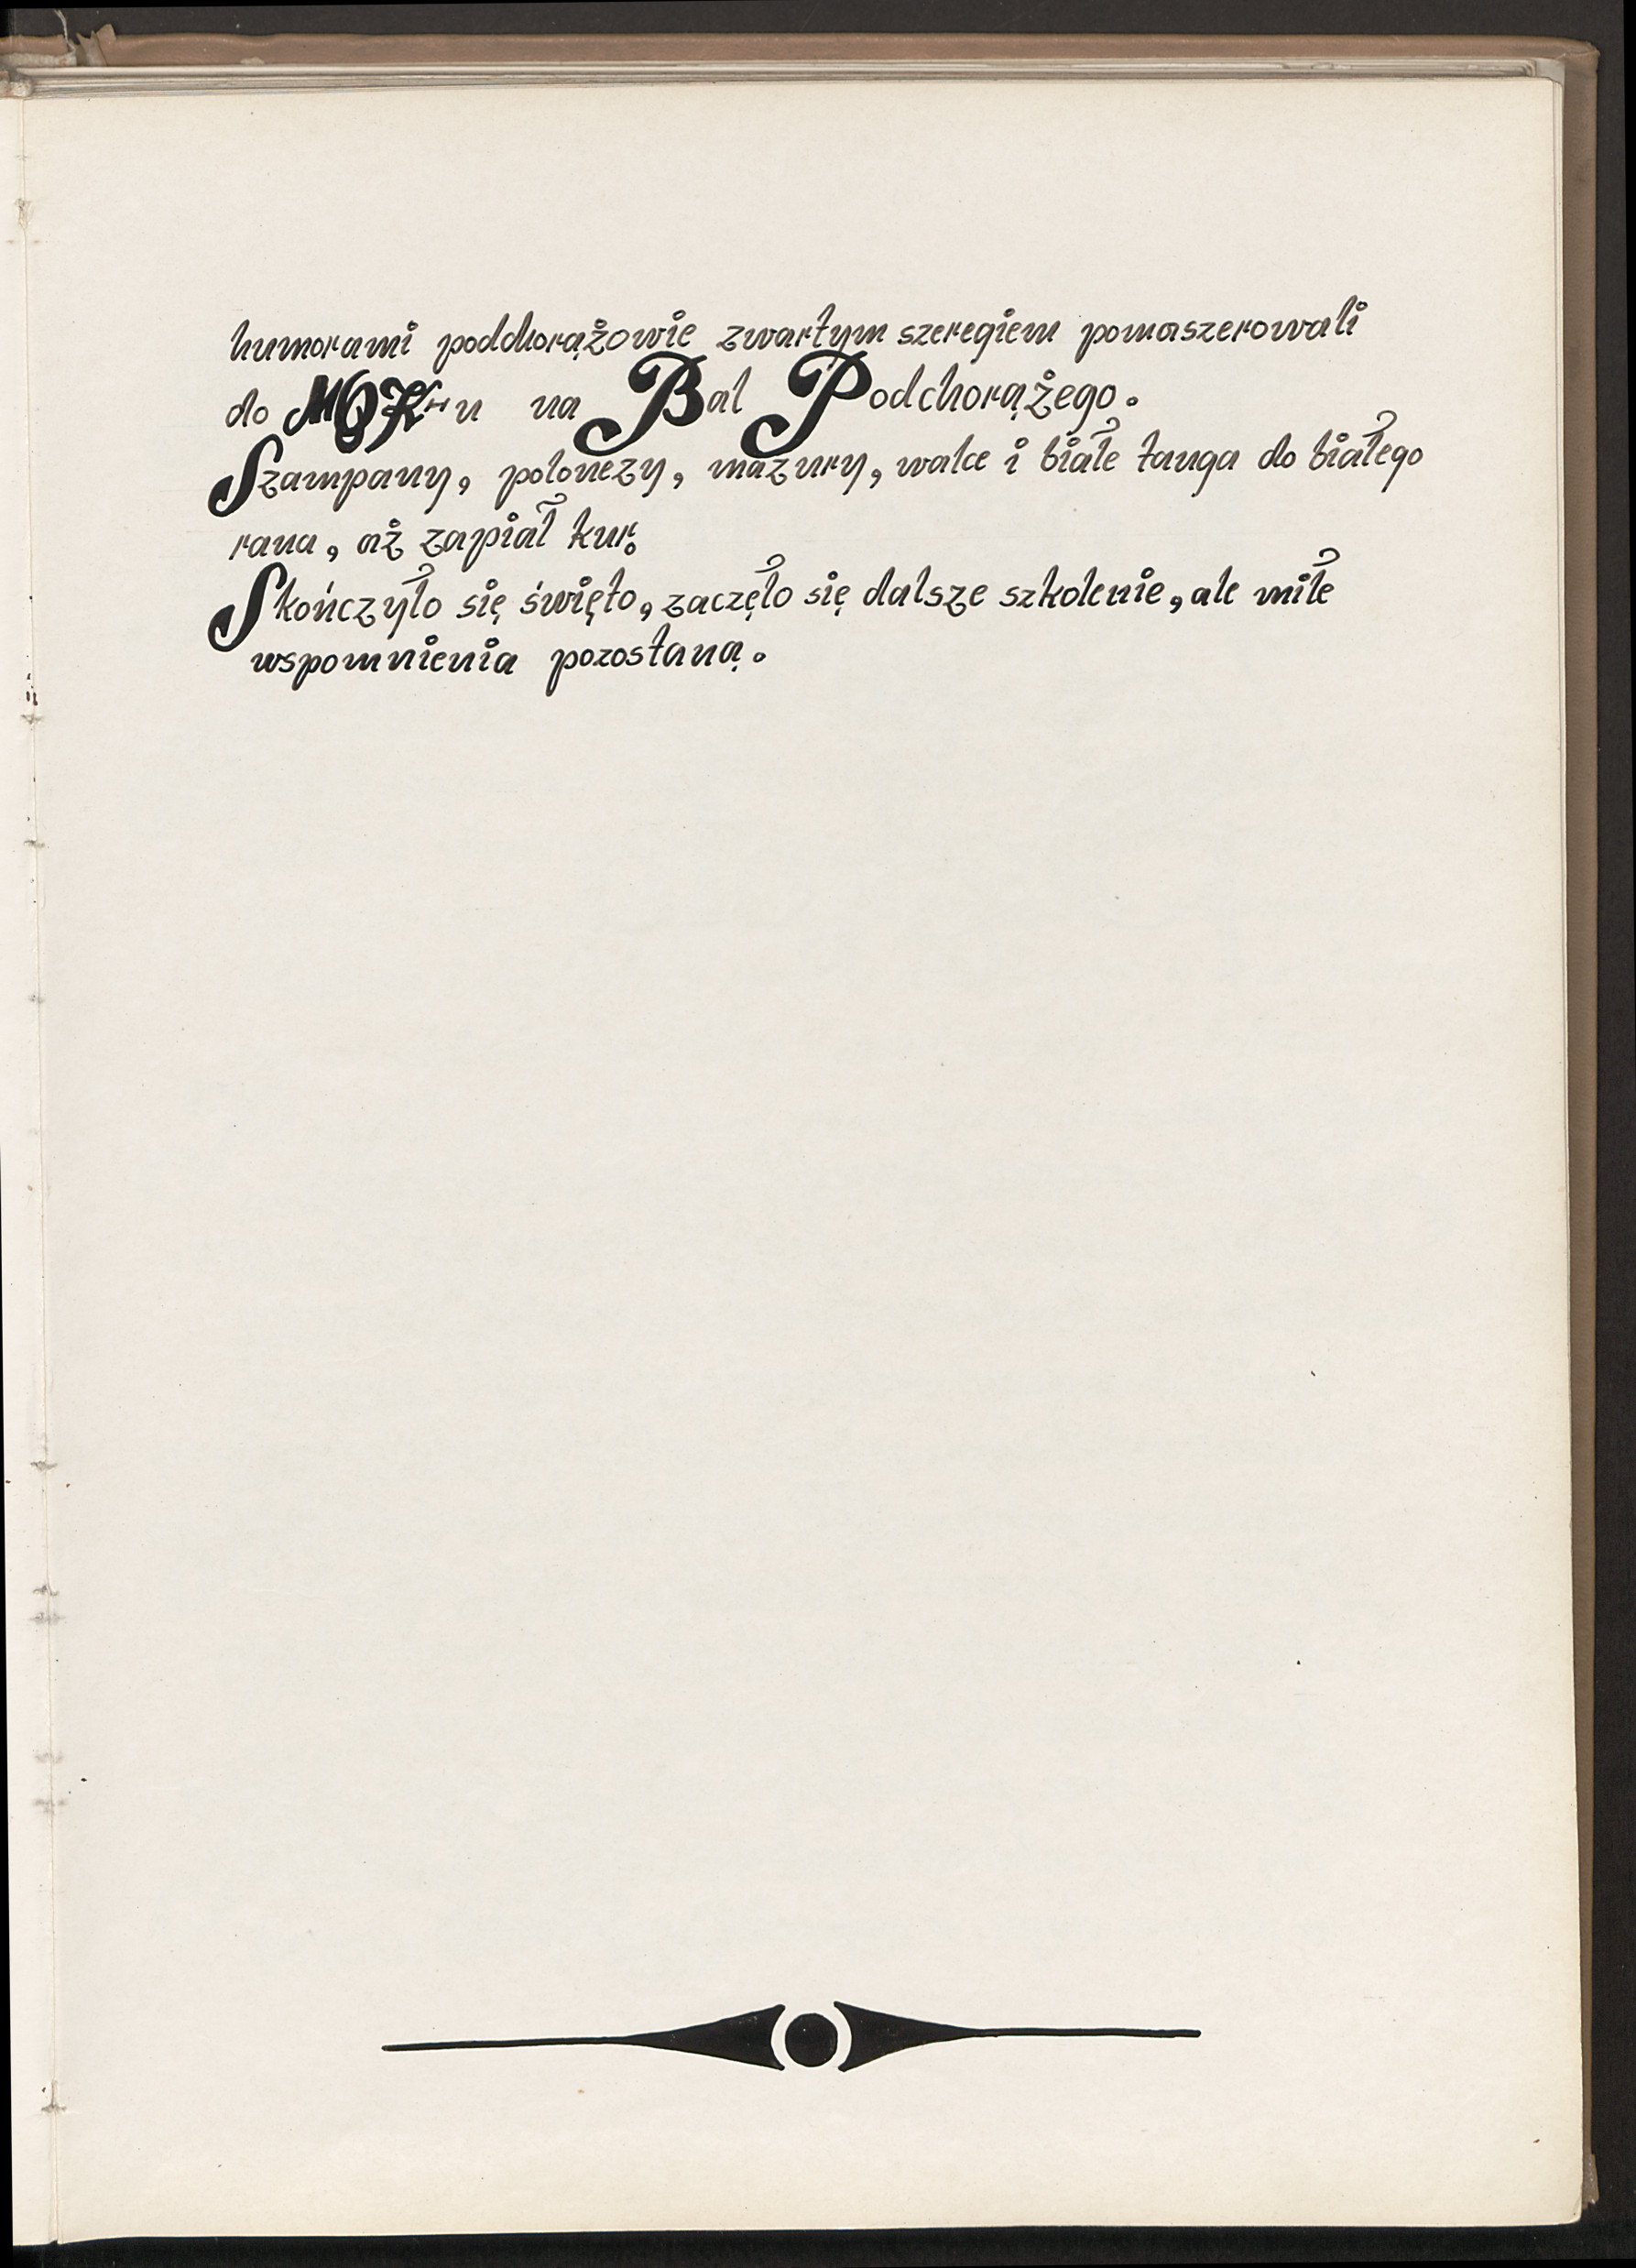 humorami podchorążowie zwartym szeregiem pomaszerowali
do MOK-u na Bal Podchorążego.
Szampany, polonezy, mazury, walce i białe tanga do białego
rana, aż zapiał kur.
Skończyło się święto, zaczęło się dalsze szkolenie, ale miłe
wspomnienia pozostaną.